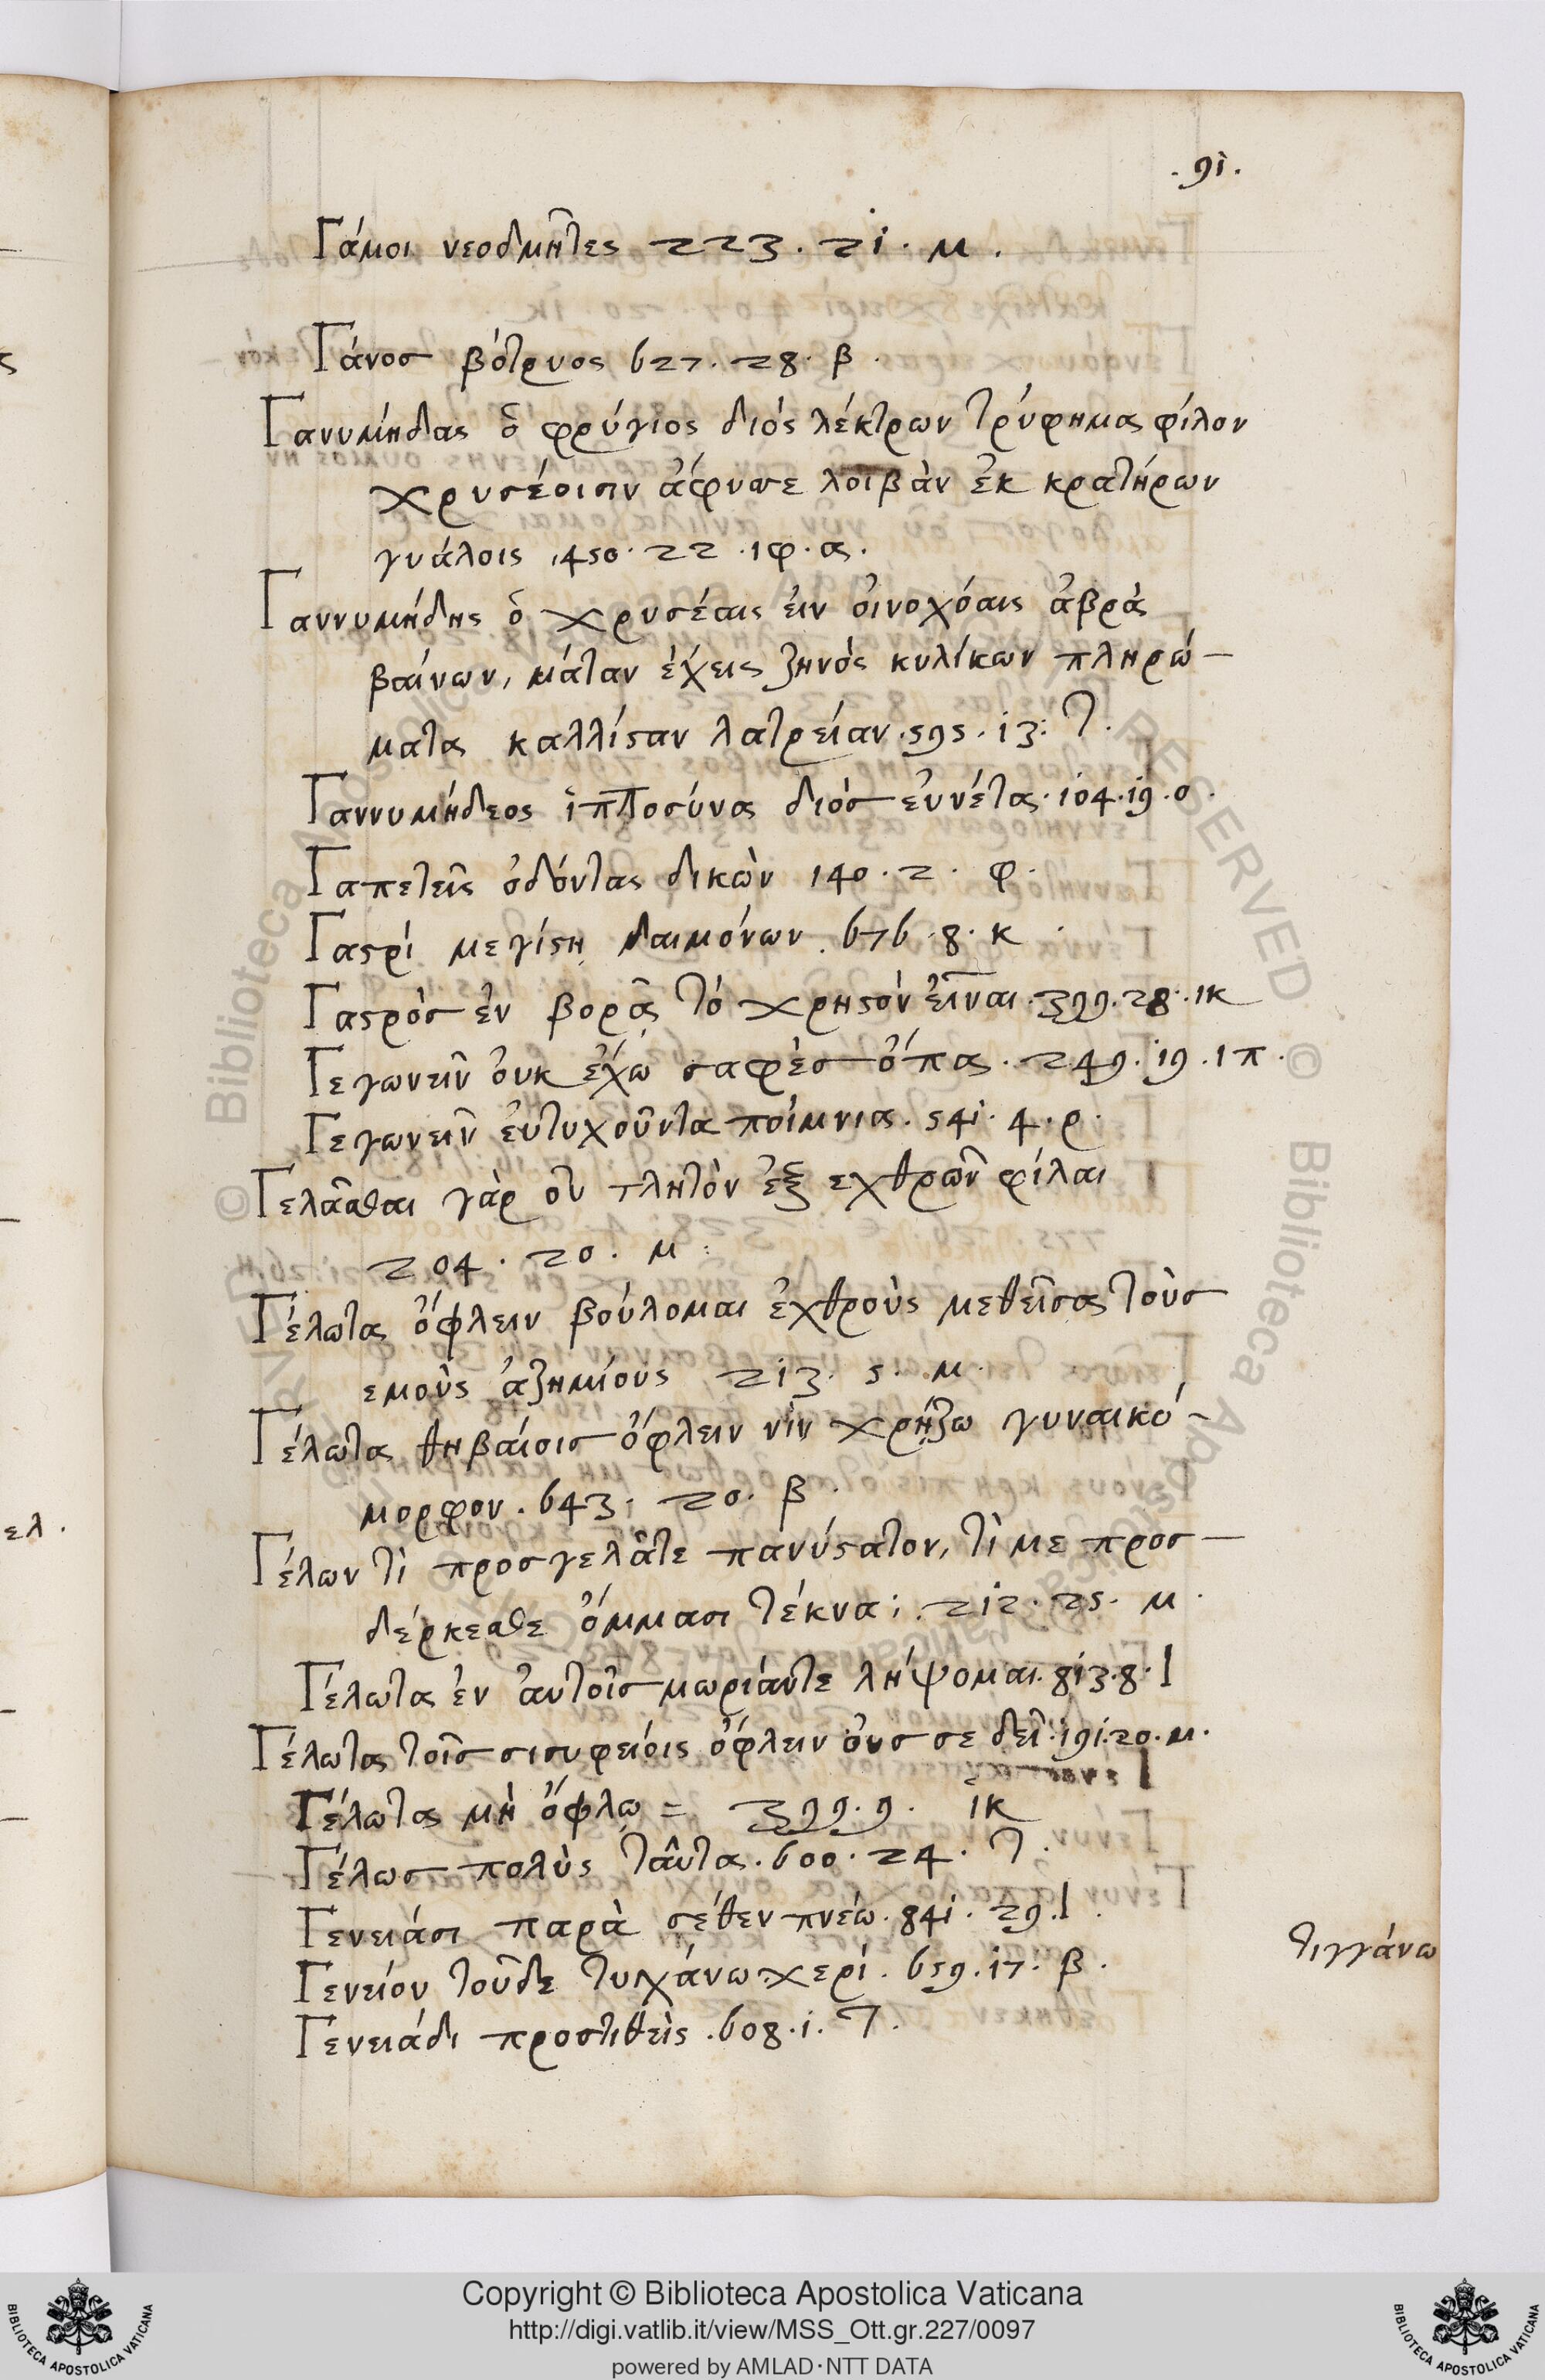 . 91 .
Γάμοι νεοδμῆτες 223 . 21 . μ .
Γάνοσ βότρυος 627 . 28 . β .
Γανυμήδας ὁ φρύγιος διός λέκτρων τρύφημα φίλον
χρυσέοισιν ἄφυσε λοιβὰν ἐκ κρατήρων
γυάλοις 450 . 22 . ιφ . α .
Γαννυμήδης ὁ χρυσέαις ἐιν οἰνοχόαις ἁβρὰ
βαίνων, μάταν ἔχεις ζηνὸς κυλίκων πληρώ –
ματα καλλίσταν λατρείαν . 595 . 13 : τ .
Γαννυμήδεος ἱπποσύνα διόσ ἐυνέτα . 104 . 19 . ο .
Γαπετεῖς ὀδόντας δικὼν 140 . 2 . φ .
Γαστρί μεγίστῃ δαιμόνων . 676 . 8 . κ .
Γαστρόσ ἐν βορᾷ τό χρηστὸν εἶναι . 399 . 28 . ικ
Γεγωνεῖν ὀυκ ἔχω σαφὲσ ὄπα . 249 . 19 . ιπ .
Γεγωνεῖν ἐυτυχοῦντα ποίμνια . 541 . 4 . ρ .
Γελᾶσθαι γὰρ οὐ τλητὸν ἐξ εχθρῶν φίλαι
204 . 20 . μ :
Γέλωτα ὄφλειν βούλομαι ἐχθροὺς μεθεῖσα τοὺσ
εμοὺς ἀζημίους 213 . 5 . μ .
Γέλωτα θηβαίοισ ὄφλειν νὶν χρῄζω γυναικό –
μορφον . 643 . 20 . β .
Γέλων τὶ προσγελᾶτε πανύστατον, τὶ με προσ –
δέρκεσθε ὄμμασι τέκνα ; . 212 . 25 . μ .
Γέλωτα ἐν ἀυτοῖσ μωρίαντε λήψομαι . 813 . 8 . Ι
Γέλωτα τοῖσ σισυφείοις ὄφλειν ὀυσ σε δεῖ . 191 . 20 . μ .
Γέλωτα μὴ ὄφλω = 399 . 9 . ικ
Γέλωσ πολὺς ταῦτα . 600 . 24 . τ .
Γενειάσι παρὰ σέθεν πνέω . 841 . 29 . Ι .
Γενείου τοῦδε τυχάνω χερί . 659 . 17 : β .
τιγγάνω
Γενειάδι προστιθεὶς . 608 . 1 . τ .
ς
ελ .
Copyright © Biblioteca Apostolica Vaticana
http://digi.vatlib.it/view/MSS_Ott.gr.227/0097
powered by AMLAD·NTT DATA
BIBLIOTECA APOSTOLICA VATICANA
BIBLIOTECA APOSTOLICA VATICANA